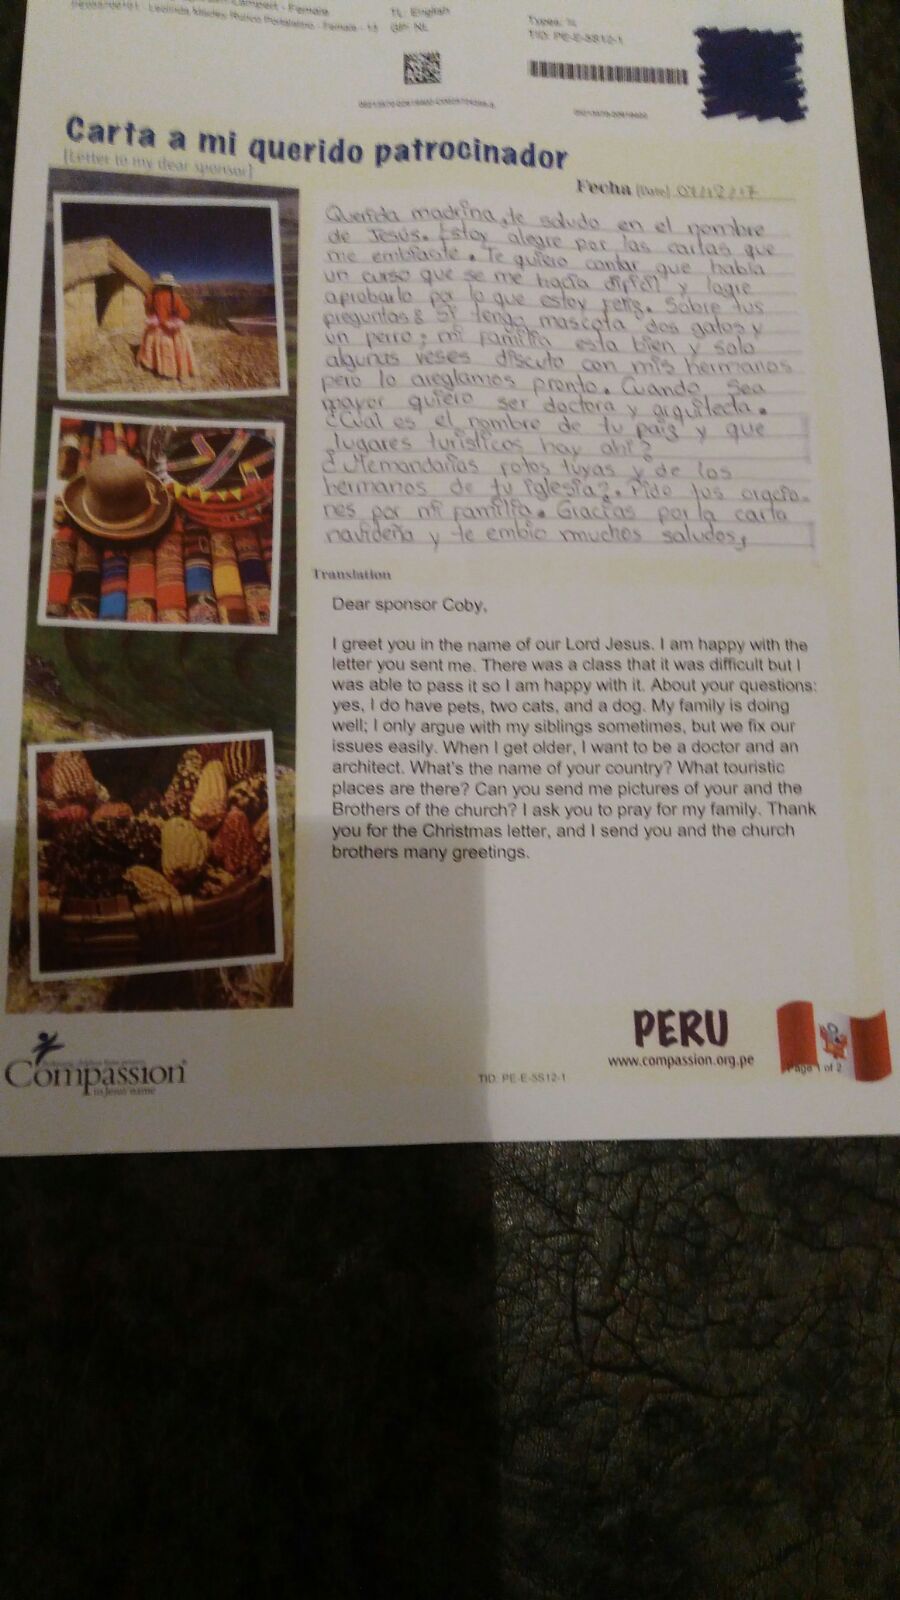 Lampert - Female
Leolinda Maciley Portalatino - Female - 13
TL: English
GP: NL
Types: SL
TID: PE-E-5S12-1
Carta a mi querido patrocinador
[Letter to my dear sponsor]
Fecha [Date] 07/12/17
Querida madrina, te saludo en el nombre
de Jesús. Estoy alegre por las cartas que
me embiaste. Te quiero contar que había
un curso que se me hacía difícil y logre
aprobarlo por lo que estoy feliz. Sobre tus
preguntas: Si tengo mascota dos gatos y
un perro; mi familia esta bien y solo
algunas veses discuto con mis hermanos
pero lo areglamos pronto. Cuando sea
mayor quiero ser doctora y arquitecta.
¿Cuál es el nombre de tu paiz y que
lugares turisticos hay ahí?
¿Memandarías fotos tuyas y de los
hermanos de tu iglesia?. Pido tus oracio-
nes por mi familia. Gracias por la carta
navideña y te embio muchos saludos,
Translation
Dear sponsor Coby,
I greet you in the name of our Lord Jesus. I am happy with the
letter you sent me. There was a class that it was difficult but I
was able to pass it so I am happy with it. About your questions:
yes, I do have pets, two cats, and a dog. My family is doing
well; I only argue with my siblings sometimes, but we fix our
issues easily. When I get older, I want to be a doctor and an
architect. What's the name of your country? What touristic
places are there? Can you send me pictures of your and the
Brothers of the church? I ask you to pray for my family. Thank
you for the Christmas letter, and I send you and the church
brothers many greetings.
PERU
www.compassion.org.pe
Page 1 of 2
Compassion
in Jesus' name
TID: PE-E-5S12-1